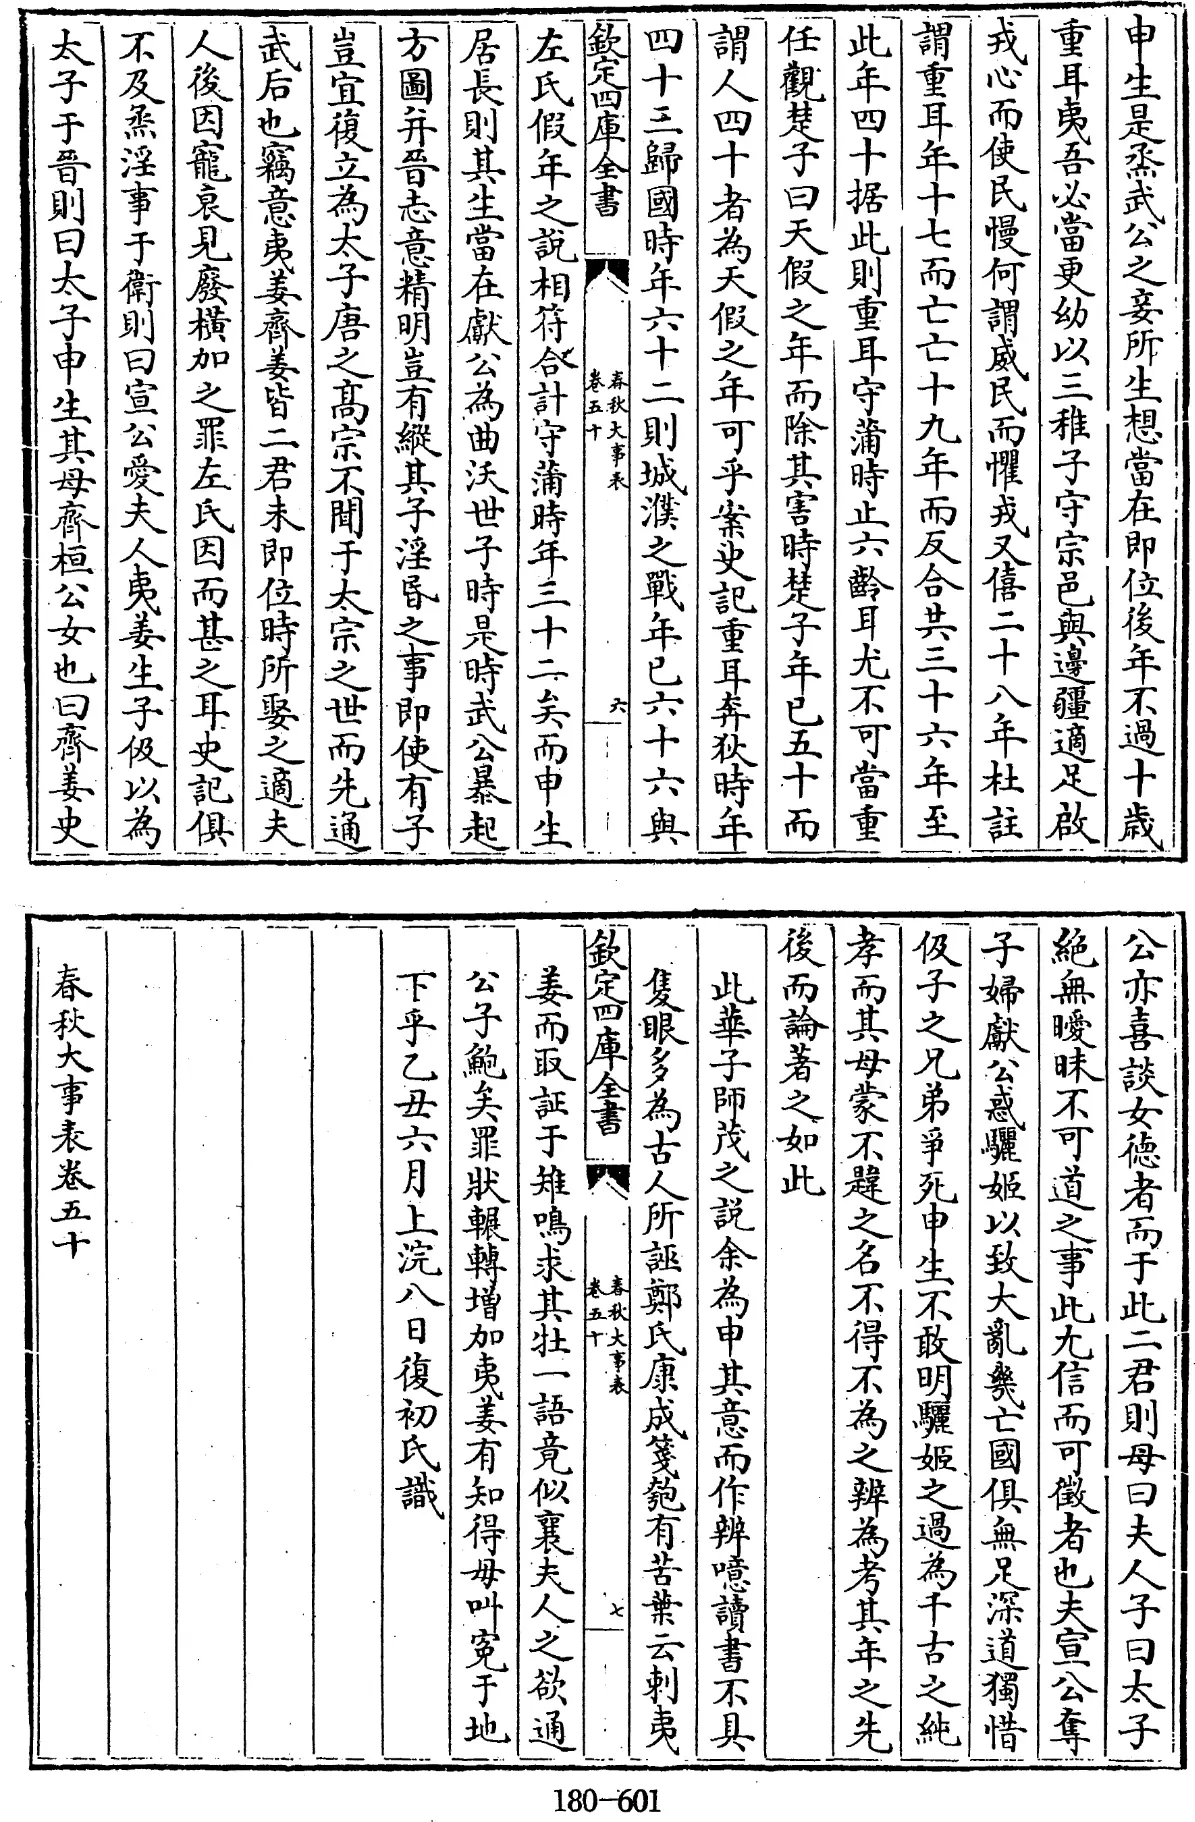 申生是烝武公之妾所生想當在即位後年不過十歲
重耳夷吾必當更幼以三稚子守宗邑與邊疆適足啟
戎心而使民慢何謂威民而懼戎又僖二十八年杜註
謂重耳年十七而亡亡十九年而反合共三十六年至
此年四十据此則重耳守蒲時止六齡耳尤不可當重
任觀楚子曰天假之年而除其害時楚子年已五十而
謂人四十者為天假之年可乎案史記重耳奔狄時年
四十三歸國時年六十二則城濮之戰年已六十六與
欽定四庫全書
春秋大事表
卷五十
六
左氏假年之說相符合計守蒲時年三十二矣而申生
居長則其生當在獻公為曲沃世子時是時武公暴起
方圖并晉志意精明豈有縱其子淫昏之事即使有子
豈宜復立為太子唐之髙宗不聞于太宗之世而先通
武后也竊意夷姜齊姜皆二君未即位時所娶之適夫
人後因寵衰見廢橫加之罪左氏因而甚之耳史記俱
不及烝淫事于衛則曰宣公愛夫人夷姜生子伋以為
太子于晉則曰太子申生其母齊桓公女也曰齊姜史
公亦喜談女德者而于此二君則母曰夫人子曰太子
絕無曖昧不可道之事此尤信而可徵者也夫宣公奪
子婦獻公惑驪姬以致大亂幾亡國俱無足深道獨惜
伋子之兄弟爭死申生不敢明驪姬之過為千古之純
孝而其母蒙不韙之名不得不為之辨為考其年之先
後而論著之如此
此華子師茂之說余為申其意而作辨噫讀書不具
隻眼多為古人所誣鄭氏康成箋匏有苦葉云刺夷
欽定四庫全書
春秋大事表
卷五十
七
姜而取証于雉鳴求其牡一語竟似襄夫人之欲通
公子鮑矣罪狀輾轉增加夷姜有知得毋叫寃于地
下乎乙丑六月上浣八日復初氏識
春秋大事表卷五十
180-601